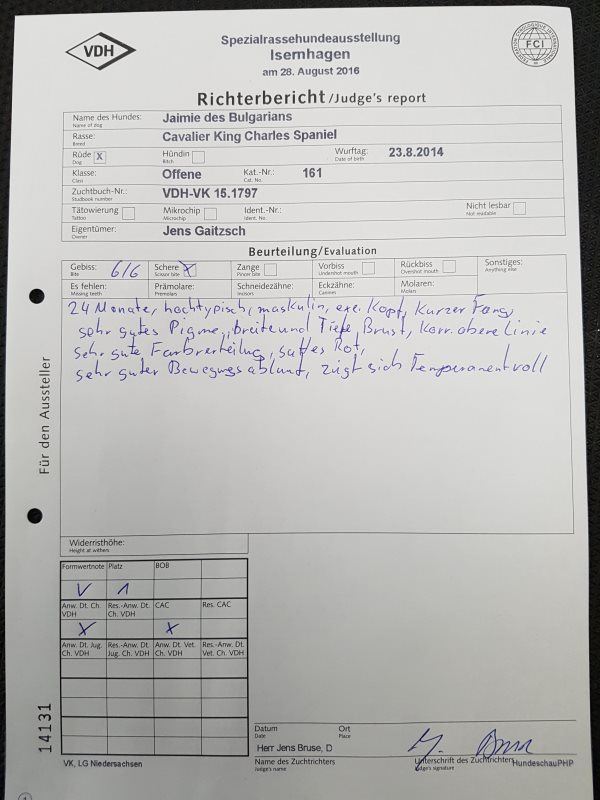 VDH
Spezialrassehundeausstellung
Isernhagen
am 28. August 2016
FEDERATION CYNOLOGIQUE INTERNATIONALE
FCI
Richterbericht/Judge's report
Name des Hundes: Jaimie des Bulgarians
Name of dog
Rasse: Cavalier King Charles Spaniel
Breed
Rüde X Hündin Wurftag: 23.8.2014
Dog Bitch Date of birth
Klasse: Offene Kat.-Nr.: 161
Class Cat. No.
Zuchtbuch-Nr.: VDH-VK 15.1797
Studbook number
Tätowierung Mikrochip Ident.-Nr.: Nicht lesbar
Tattoo Microchip Ident. No.: Not readable
Eigentümer: Jens Gaitzsch
Owner
Beurteilung/Evaluation
Gebiss: 6/6 Schere X Zange Vorbiss Rückbiss Sonstiges:
Bite Scissor bite Pincer bite Undershot mouth Overshot mouth Anything else
Es fehlen: Prämolare: Schneidezähne: Eckzähne: Molaren:
Missing teeth Premolars Incisors Canines Molars
24 Monate, hochtypisch, maskulin, exc. Kopf, kurzer Fang,
sehr gutes Pigme., breite und Tiefe Brust, Korr. obere Linie
sehr gute Farbverteilung, sattes Rot,
sehr guter Bewegungsablauf, zeigt sich Temperamentvoll
Für den Aussteller
Widerristhöhe:
Height at withers
Formwertnote Platz BOB
V 1
Anw. Dt. Ch. VDH Res.-Anw. Dt. Ch. VDH CAC Res. CAC
X X
Anw. Dt. Jug. Ch. VDH Res.-Anw. Dt. Jug. Ch. VDH Anw. Dt. Vet. Ch. VDH Res.-Anw. Dt. Vet. Ch. VDH
14131
Datum Ort
Date Place
Herr Jens Bruse, D
VK, LG Niedersachsen
Name des Zuchtrichters Unterschrift des Zuchtrichters HundeschauPHP
Judge's name Judge's signature